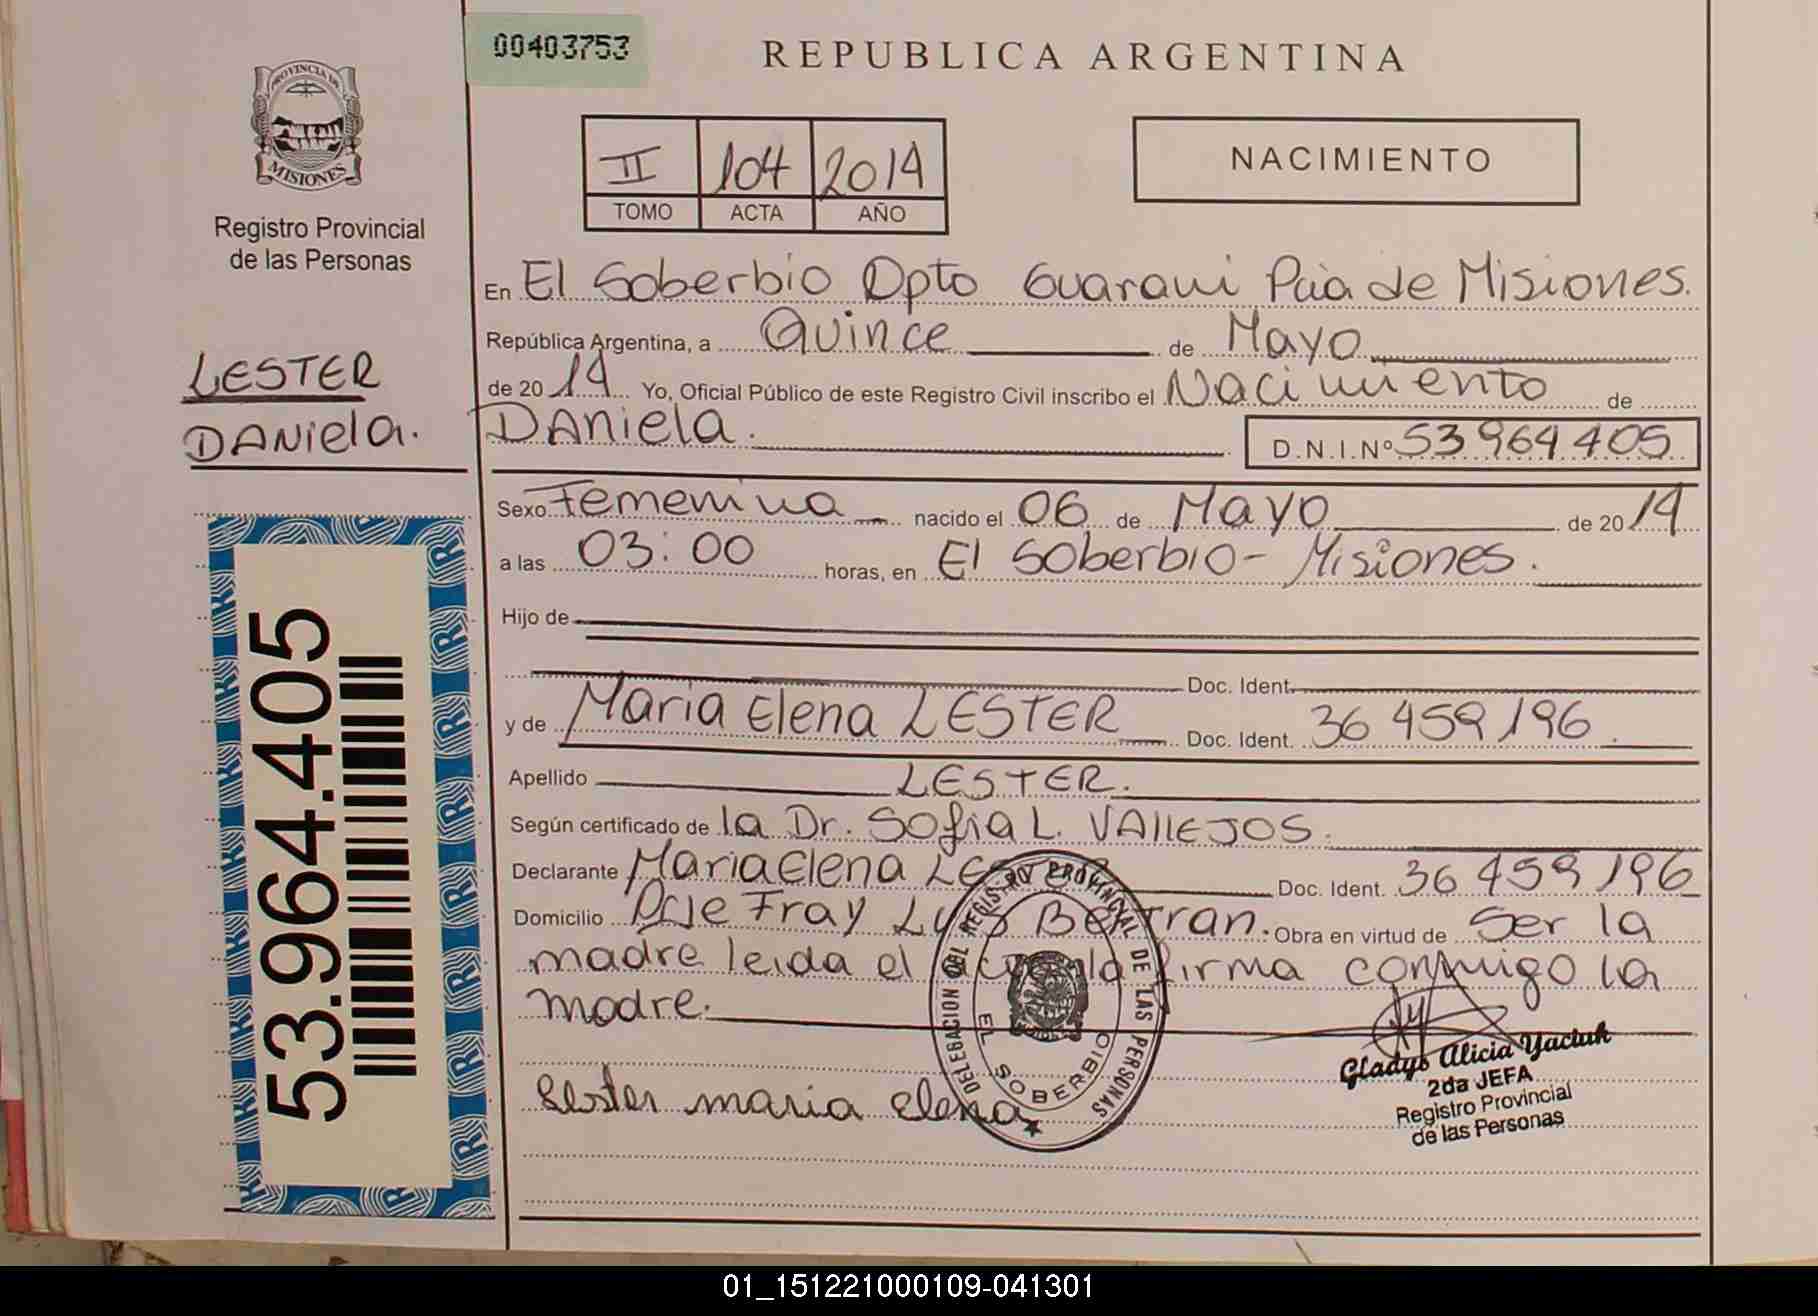 00403753
REPUBLICA ARGENTINA
PROVINCIA DE
MISIONES
Registro Provincial
de las Personas
II 104 2014
TOMO ACTA AÑO
NACIMIENTO
En El Soberbio Dpto Guarani Pcia de Misiones.
República Argentina, a Quince de Mayo
de 2014 Yo, Oficial Público de este Registro Civil inscribo el Nacimiento de
LESTER
DANiela.
DANiela. D.N.I.Nº 53964405
Sexo Femenina nacido el 06 de Mayo de 2014
a las 03:00 horas, en El Soberbio - Misiones.
Hijo de
Doc. Ident.
y de Maria Elena LESTER Doc. Ident. 36 459 196
Apellido LESTER.
Según certificado de la Dr. Sofia L. VALLEJOS.
Declarante Maria Elena LESTER Doc. Ident. 36 459 196
Domicilio Pje Fray Luis Beltran. Obra en virtud de Ser la
madre leida el acta la firma conmigo la
madre.
53.964.405
DELEGACION DEL REGISTRO PROVINCIAL DE LAS PERSONAS
EL SOBERBIO
Lester maria Elena
Gladys Alicia Yaciuk
2da JEFA
Registro Provincial
de las Personas
01_151221000109-041301